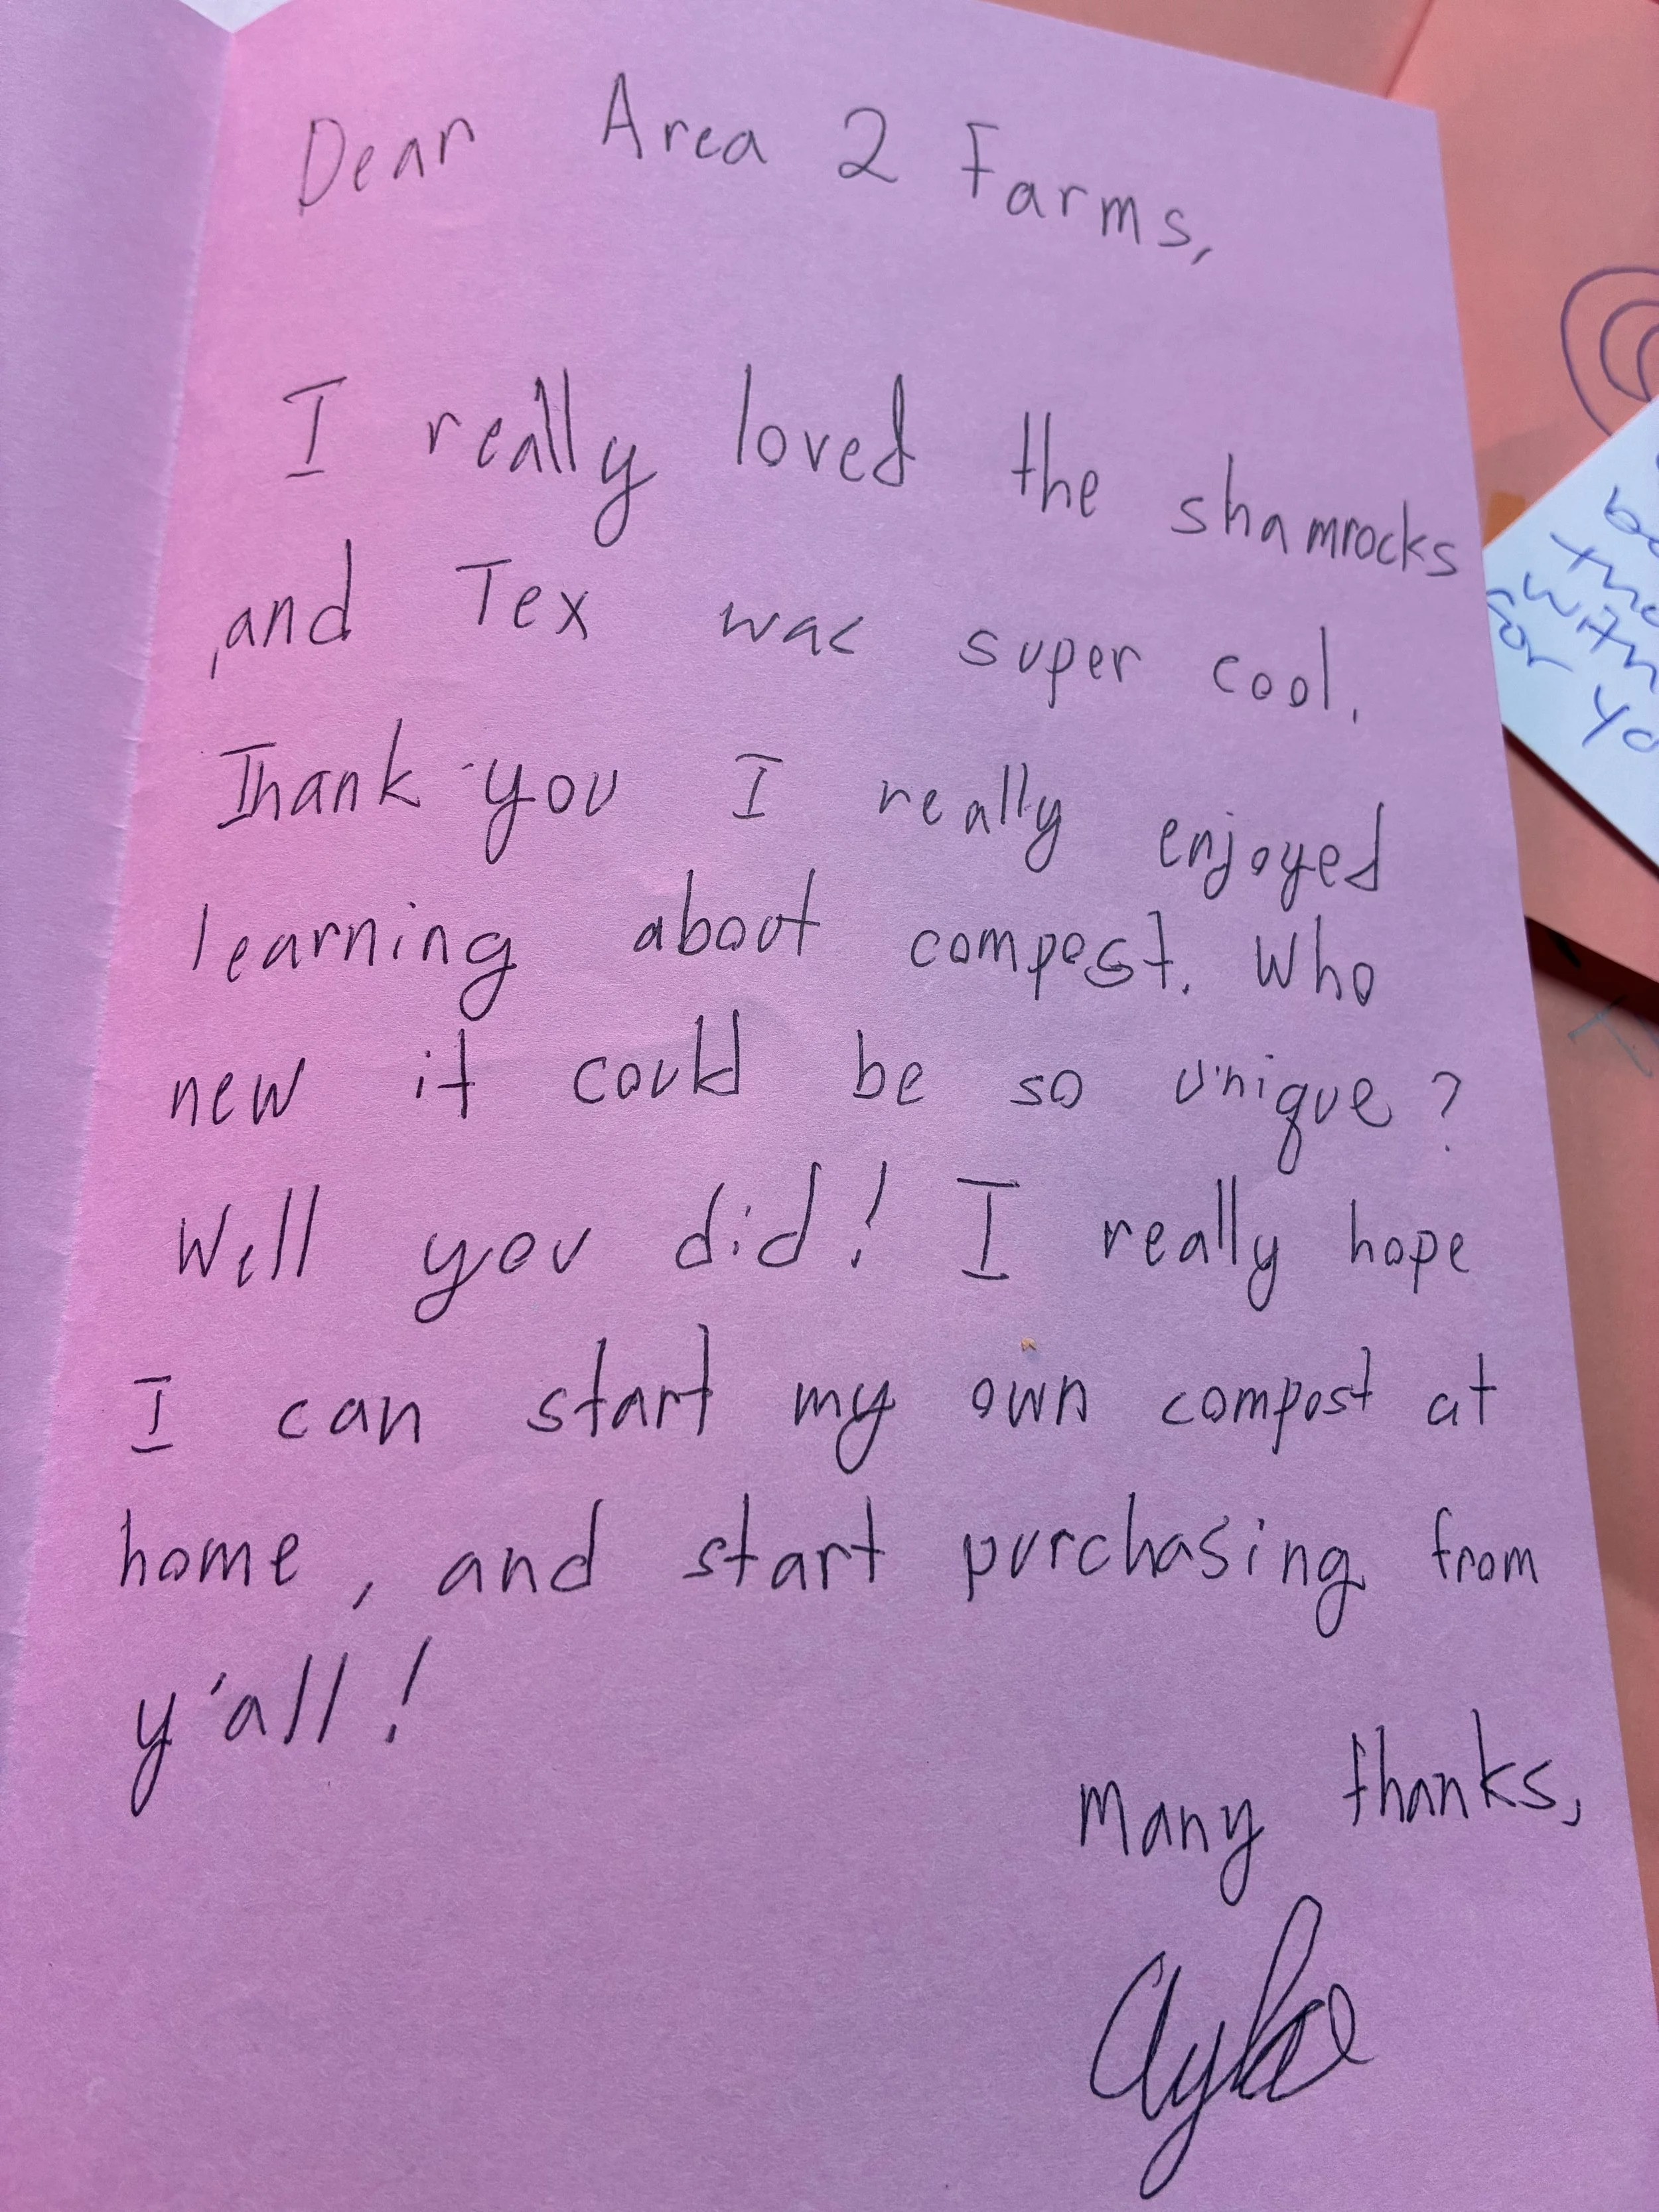 Dear Area 2 Farms,
I really loved the shamrocks
,and Tex was super cool.
Thank you I really enjoyed
learning about compost. Who
new it could be so unique?
Well you did! I really hope
I can start my own compost at
home, and start purchasing from
y'all!
Many thanks,
for